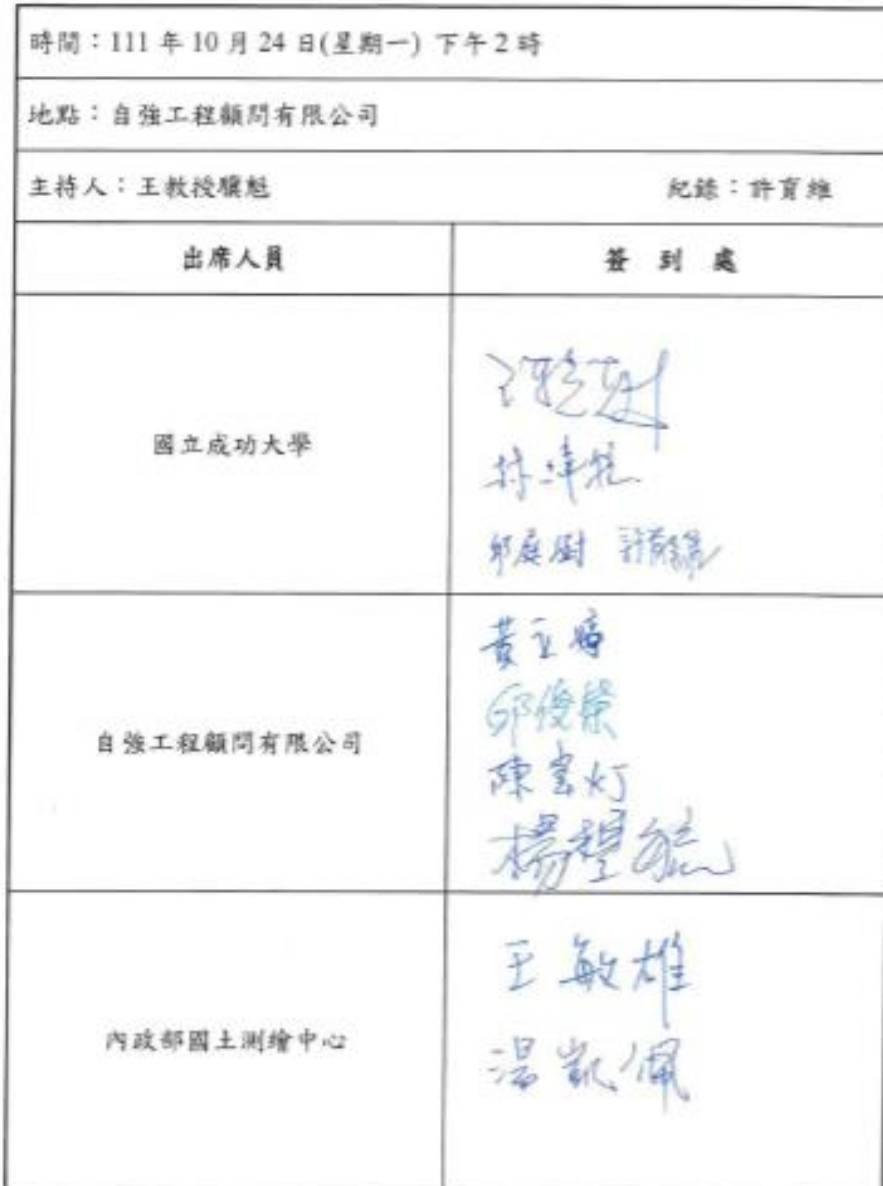 時間：111 年 10 月 24 日(星期一) 下午 2 時
地點：自強工程顧問有限公司
主持人：王教授驥魁 紀錄：許育維
出席人員 簽 到 處
國立成功大學
邱庭澍
自強工程顧問有限公司
黃立婷
邱俊榮
陳雲灯
楊
內政部國土測繪中心
王敏雄
湯凱佩